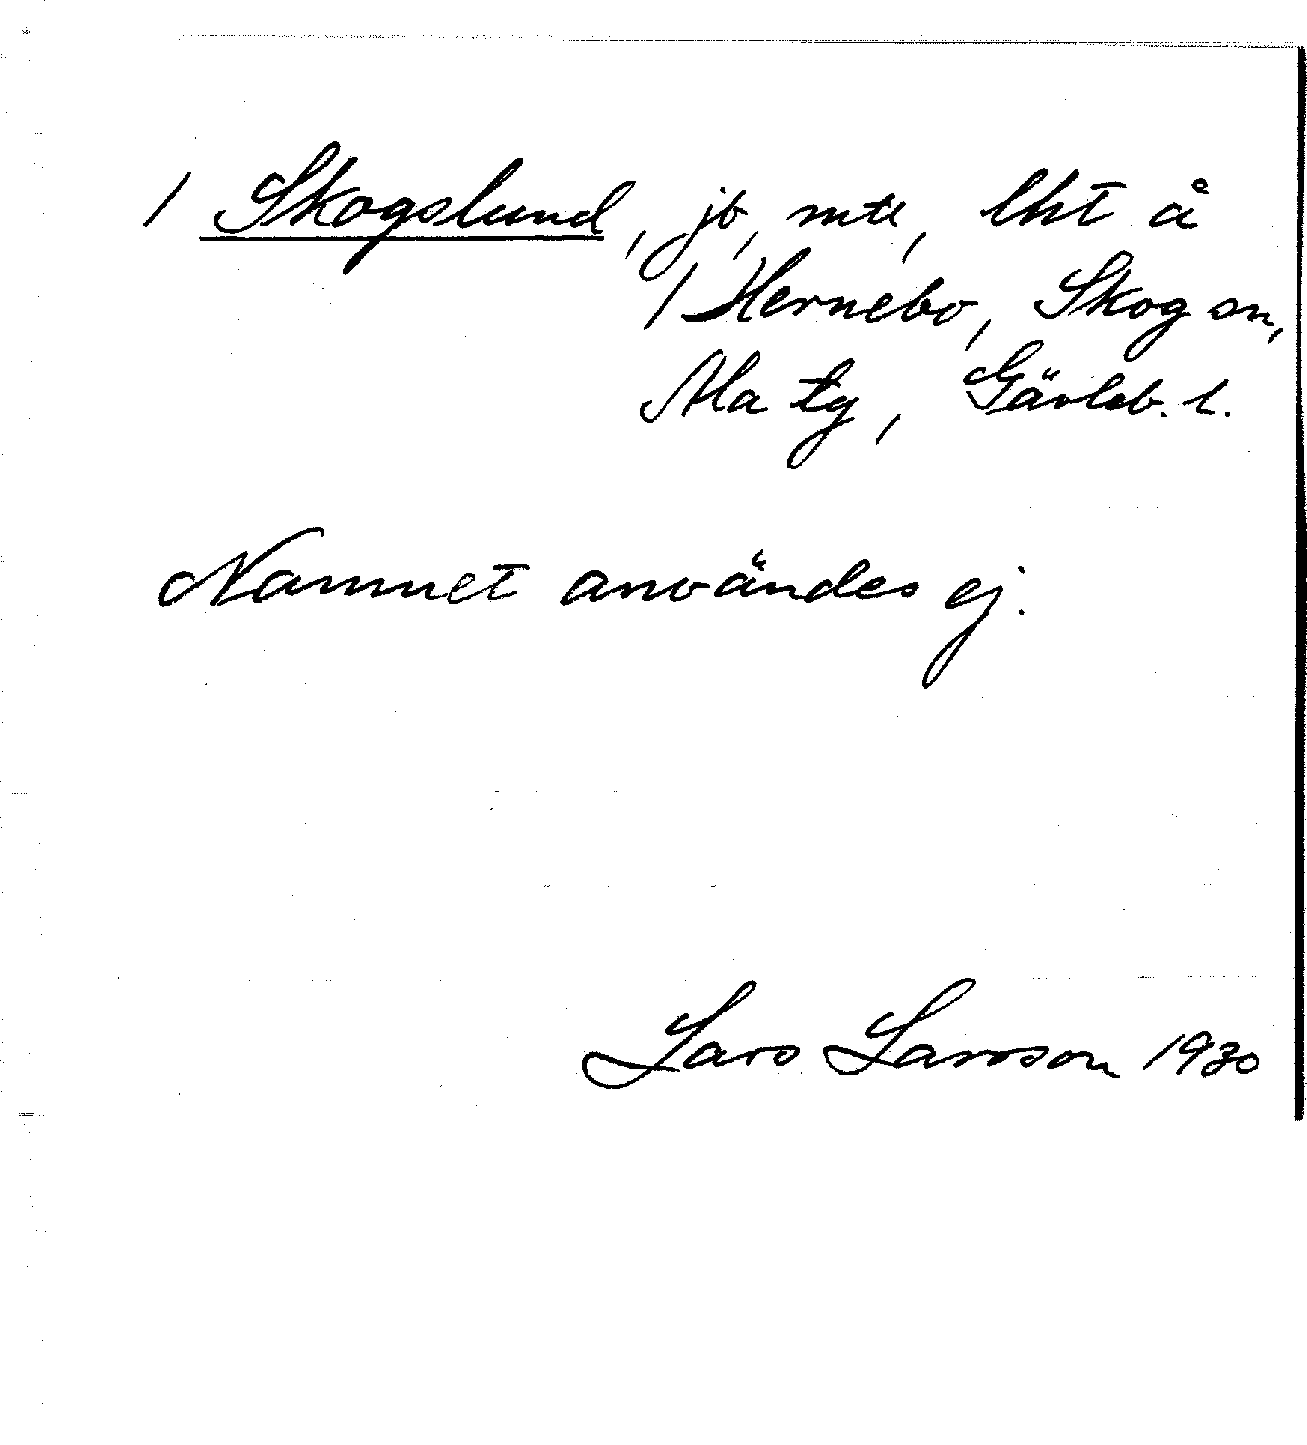 / Skogslund, jb, mtl, lht å
/ Hernebo, Skog sn,
Ala tg, Gävleb. l.
Namnet användes ej.
Lars Larsson 1930